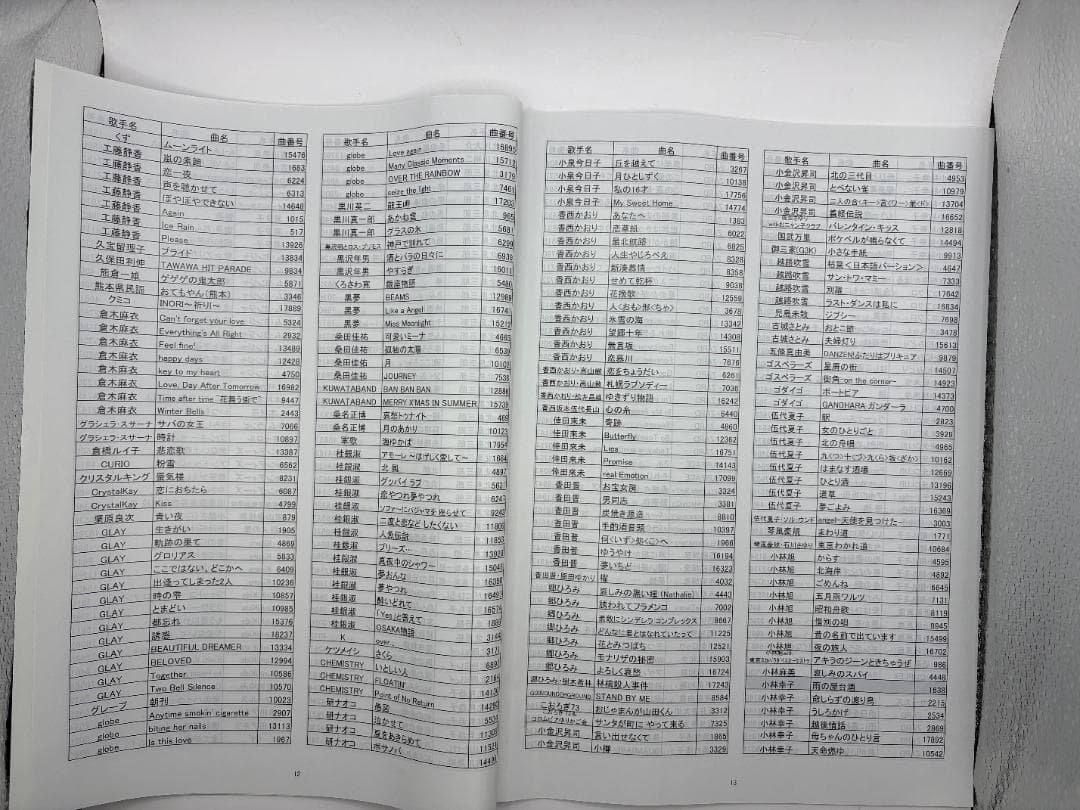 歌手名 曲名 曲番号
くず ムーンライト 15476
工藤静香 嵐の素顔 1683
工藤静香 恋一夜 6224
工藤静香 声を聴かせて 6313
工藤静香 ぼやぼやできない 14646
工藤静香 Again 1015
工藤静香 Ice Rain 517
工藤静香 Please 13926
久宝留理子 プライド 13834
久保田利伸 TAWAWA HIT PARADE 9834
熊倉一雄 ゲゲゲの鬼太郎 5871
熊本県民謡 おてもやん(熊本) 3346
クミコ INORI～祈り～ 17889
倉木麻衣 Can't forget your love 5324
倉木麻衣 Everything's All Right 2932
倉木麻衣 Feel fine! 13489
倉木麻衣 happy days 12428
倉木麻衣 key to my heart 4750
倉木麻衣 Love, Day After Tomorrow 16962
倉木麻衣 Time after time~花舞う街で~ 9447
倉木麻衣 Winter Bells 2443
グラシェラ・スサーナ サバの女王 7066
グラシェラ・スサーナ 時計 10897
倉橋ルイ子 悲恋歌 13387
CURIO 粉雪 6562
クリスタルキング 蜃気楼 8231
CrystalKay 恋におちたら 6087
CrystalKay Kiss 4799
栗原良次 青い夜 879
GLAY 生きがい 1905
GLAY 軌跡の果て 4869
GLAY グロリアス 5833
GLAY ここではない、どこかへ 6409
GLAY 出逢ってしまった2人 10236
GLAY 時の雫 10857
GLAY とまどい 10985
GLAY 都忘れ 15376
GLAY 誘惑 16237
GLAY BEAUTIFUL DREAMER 13334
GLAY BELOVED 12994
GLAY Together 10586
GLAY Two Bell Silence 10570
グレープ 朝刊 10023
globe Anytime smokin' cigarette 2907
globe biting her nails 13113
globe Is this love 1967
12
歌手名 曲名 曲番号
globe Love again
globe Many Classic Moments 15712
globe OVER THE RAINBOW 3179
globe seize the light 7461
黒川英二 龍王岬 17203
黒川真一郎 あかね雲 965
黒川真一郎 グラスの氷 5681
黒沢明とロス・プリモス 神戸で別れて 6299
黒沢年男 酒とバラの日々に 6939
黒沢年男 やすらぎ 16011
くろさわ寛 銀座物語 5480
黒夢 BEAMS 12989
黒夢 Like a Angel
黒夢 Miss Moonlight
桑田佳祐 可愛いミーナ 4665
桑田佳祐 孤独の太陽 6539
桑田佳佑 月 10102
桑田佳祐 JOURNEY 7538
KUWATABAND BAN BAN BAN 12886
KUWATABAND MERRY X'MAS IN SUMMER 15739
桑名正博 哀愁トゥナイト 469
桑名正博 月のあかり 10123
軍歌 海ゆかば 17954
桂銀淑 アモーレ～はげしく愛して～ 1664
桂銀淑 北風
桂銀淑 グッバイラブ
桂銀淑 恋やつれ夢やつれ
桂銀淑 ソファーにパジャマを 座らせて
桂銀淑 二度と恋などしたくない
桂銀淑 人魚伝説
桂銀淑 プリーズ…
桂銀淑 真夜中のシャワー
桂銀淑 夢おんな
桂銀淑 夢やつれ
桂銀淑 酔いどれて
桂銀淑 「Yes」と答えて
桂銀淑 OSAKA物語
K over…
ケツメイシ さくら
CHEMISTRY いとしい人
CHEMISTRY FLOATIN'
CHEMISTRY Point of No Return
研ナオコ 愚図
研ナオコ 泣かせて
研ナオコ 夏をあきらめて
研ナオコ ボサノバ
歌手名 曲名 曲番号
小泉今日子 丘を越えて 3267
小泉今日子 月ひとしずく 10138
小泉今日子 私の16才 17756
小泉今日子 My Sweet Home 14774
香西かおり あなたへ 1383
香西かおり 恋草紙 6022
香西かおり 最北航路 6825
香西かおり 人生やじろべえ 8328
香西かおり 新湊慕情 8358
香西かおり せめて乾杯 9038
香西かおり 花挽歌 12559
香西かおり 人<おも>形<ちゃ> 3678
香西かおり 氷雪の海 13342
香西かおり 望郷十年 14308
香西かおり 無言坂 15511
香西かおり 恋慕川 7676
香西かおり・高山厳 恋をちょうだい 6261
香西かおり・高山厳 札幌ラプソディー 7036
香西かおり・絵井晶緒 ゆきずり物語 16242
香西坂本伍代長山 心の糸 6440
倖田来未 奇跡 4860
倖田來未 Butterfly 12362
倖田來未 Lies 16751
倖田來未 Promise 14143
倖田來未 real Emotion 17099
香田晋 お宝女房 3324
香田晋 男同志 3381
香田晋 炭焼き慕造 9810
香田晋 手酌酒音頭 10397
香田晋 何<いず>処<こ>へ 1968
香田晋 ゆうやけ 16194
香田晋 夢いちど 16323
香田晋・原田ゆかり 櫂 4032
郷ひろみ 哀しみの黒い瞳 (Nathalie) 4443
郷ひろみ 誘われてフラメンコ 7002
郷ひろみ 素敵にシンデレラ コンプレックス 8667
郷ひろみ どんなに君とはなれていたって 11225
郷ひろみ 花とみつばち 12521
郷ひろみ モナリザの秘密 15903
郷ひろみ よろしく哀愁 16724
郷ひろみ・樹木希林 林檎殺人事件 17243
GOINGUNDERGROUND STAND BY ME 8584
こおろぎ73 おじゃまんが山田くん 3312
コロムビアゆりかご会 サンタが町に やって来る 7325
小金沢昇司 言い出せなくて 1865
小金沢昇司 小樽 3329
13
歌手名 曲名 曲番号
小金沢昇司 北の三代目 4953
小金沢昇司 とべない雀 10979
小金沢昇司 二人の合<キー>言<ワー>葉<ド> 13704
小金沢昇司 義経伝説 16652
withおニャン子クラブ バレンタイン・キッス 12818
国武万里 ポケベルが鳴らなくて 14494
御三家(G3K) 小さな手紙 9913
越路吹雪 枯葉<日本語バージョン> 4647
越路吹雪 サン・トワ・マミー 7333
越路吹雪 別離 17642
越路吹雪 ラスト・ダンスは私に 16834
児島未散 ジプシー 7698
古城さとみ おとこ節 3478
古城さとみ 夫婦灯り 15613
五條真由美 DANZEN!ふたりはプリキュア 9879
ゴスペラーズ 星屑の街 14507
ゴスペラーズ 街角-on the corner- 14923
ゴダイゴ ポートピア 14373
ゴダイゴ GANDHARA ガンダーラ 4700
伍代夏子 宴 2823
伍代夏子 女のひとりごと 3928
伍代夏子 北の舟唄 4965
伍代夏子 九<つ>十<づ>九<ら>坂<ざか> 10162
伍代夏子 はまなす酒場 12669
伍代夏子 ひとり酒 13196
伍代夏子 道草 15243
伍代夏子 夢ごよみ 16369
伍代夏子・ソル・ウンド angel-天使を見つけた- 3003
琴風豪規 まわり道 1771
琴風豪規・石川さゆり 東京わかれ道 10684
小林旭 からす 4595
小林旭 北海岸 4892
小林旭 ごめんね 6645
小林旭 五月雨ワルツ 7131
小林旭 昭和舟歌 8119
小林旭 惜別の唄 8945
小林旭 昔の名前で出ています 15499
小林旭 夜の旅人 16702
アキラのジーンときちゃうぜ 986
小林麻美 哀しみのスパイ 4448
小林幸子 雨の屋台酒 1638
小林幸子 命しらずの渡り鳥 2213
小林幸子 うしろかげ 2534
小林幸子 越後情話 2869
小林幸子 母ちゃんのひとり言 17892
小林幸子 天命燃ゆ 10542